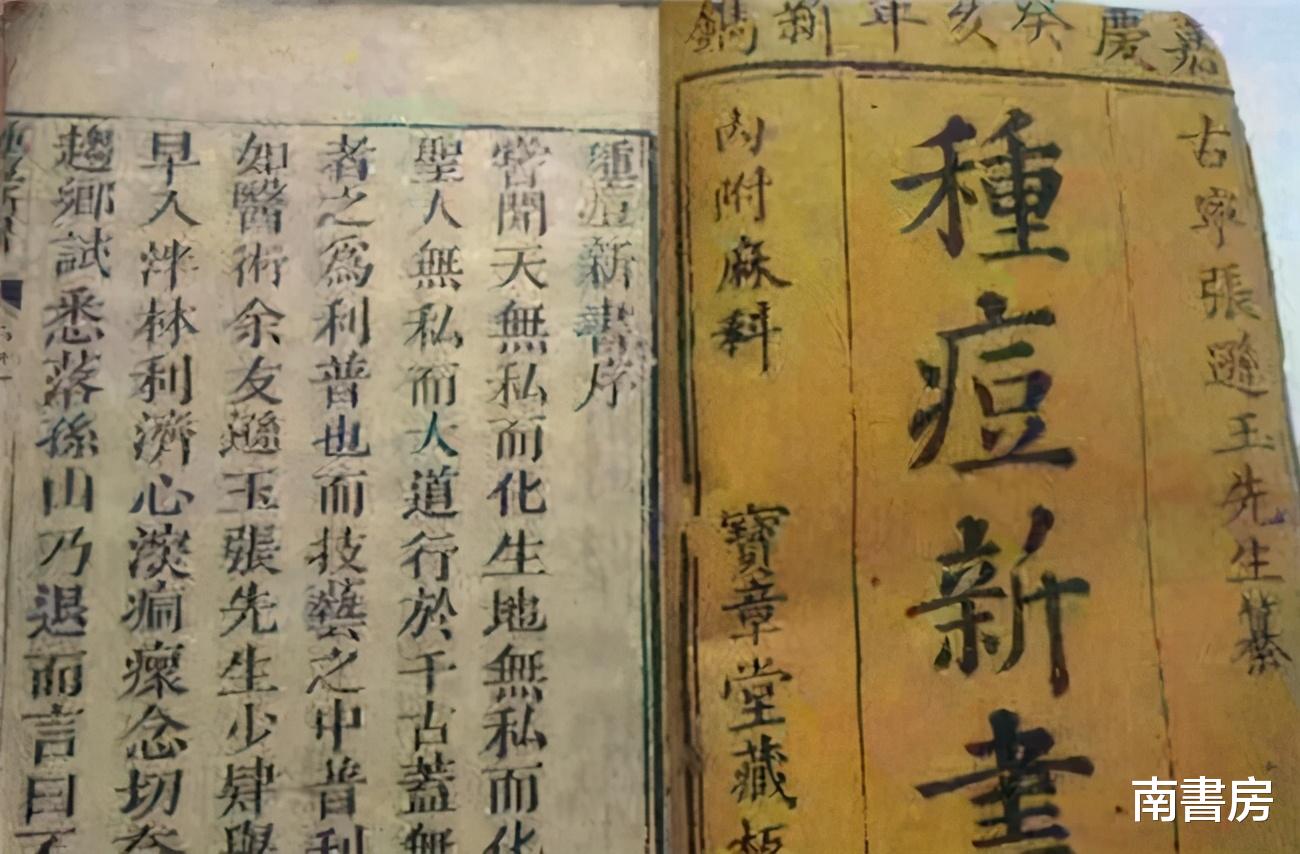 嘉慶癸亥年新鐫
古寧張遜玉先生纂
種痘新書
內附麻科
寶章堂藏板
種痘新書序
嘗聞天無私而化生地無私而化
聖人無私而大道行於千古蓋無
者之爲利普也而技藝之中普利
如醫術余友遜玉張先生少肄
早入泮林利濟心深痌瘝念切
趨鄉試悉落孫山乃退而言曰不
南書房